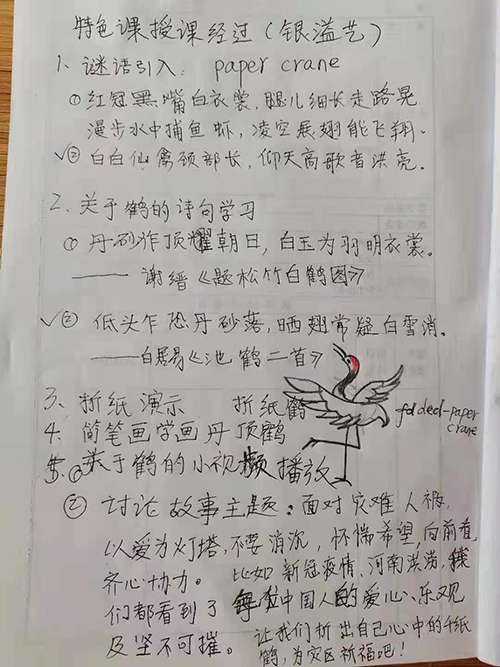 特色课授课经过(银溢艺)
1、谜语引入: paper crane
①红冠黑嘴白衣裳,腿儿细长走路晃
漫步水中捕鱼虾,凌空展翅能飞翔。
√②白白仙禽颈部长,仰天高歌音洪亮。
2、关于鹤的诗句学习
①丹砂作顶耀朝日,白玉为羽明衣裳。
——谢缙《题松竹白鹤图》
√②低头乍恐丹砂落,晒翅常疑白雪消。
——白居易《池鹤二首》
3、折纸演示 折纸鹤
folded-paper crane
4、简笔画学画丹顶鹤
5、①关于鹤的小视频播放
②讨论故事主题:面对灾难人祸,
以爱为灯塔,不要消沉,怀惴希望,向前看,
齐心协力。比如新冠疫情、河南洪涝,我
们都看到了每位中国人的爱心、乐观
及坚不可摧。让我们折出自己心中的千纸
鹤,为灾区祈福吧!